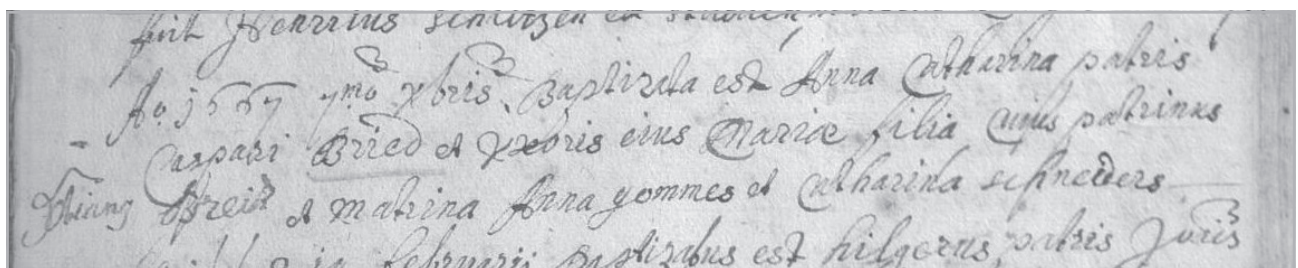 fuit Henricus
Ao 1667 7mo Xbris Baptizata est Anna Catharina patris
Caspari Bried et Uxoris eius Mariæ filia cuius patrinus
et matrina Anna gommes et Catharina schneiders
februarii Baptizatus est hilgerus patris Joris